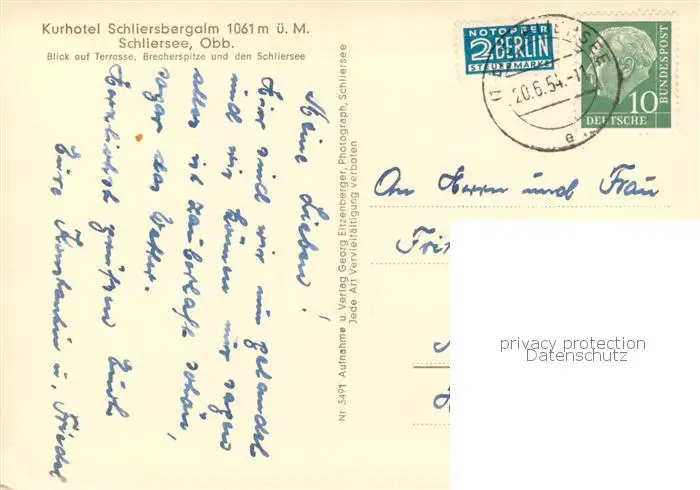 Kurhotel Schliersbergalm 1061 m ü. M.
Schliersee, Obb.
Blick auf Terrasse, Brecherspitze und den Schliersee
Meine Lieben!
Hier sind wir nun gelandet
und wir können nur sagen
alles ist zauberhaft schön,
sogar das Wetter.
Herzlichst grüßen Euch
Eure Konstantin u. Friedel
Nr 3491 Aufnahme u. Verlag Georg Eitzenberger, Photograph, Schliersee
Jede Art Vervielfältigung verboten
NOTOPFER
2 BERLIN
STEUERMARKE
20.6.54.
e
10
DEUTSCHE
BUNDESPOST
An Herrn und Frau
privacy protection
Datenschutz